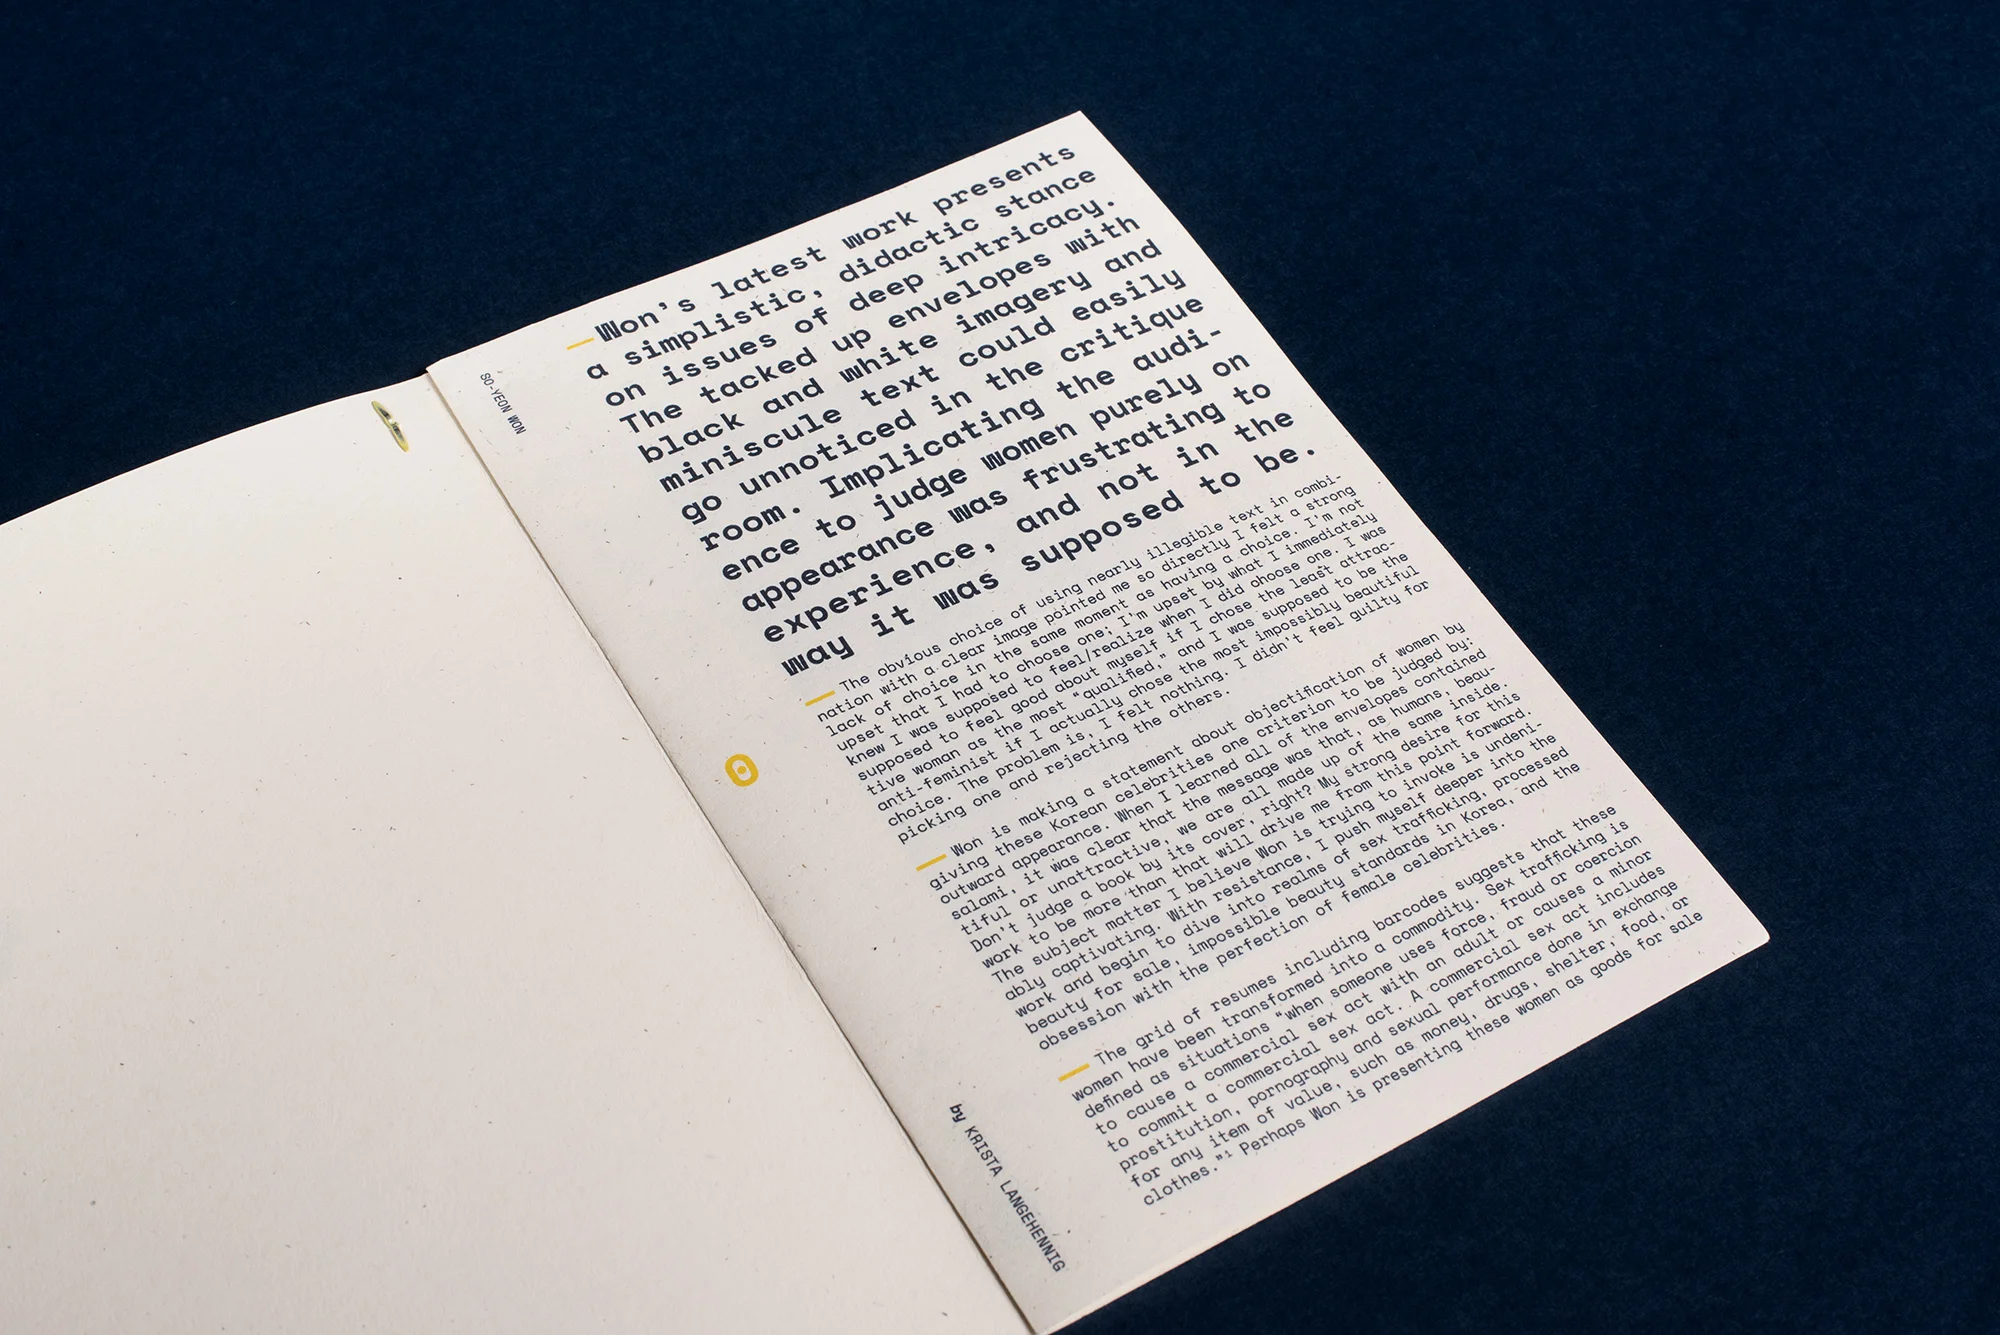 SO-YEON WON
—Won's latest work presents
a simplistic, didactic stance
on issues of deep intricacy.
The tacked up envelopes with
black and white imagery and
miniscule text could easily
go unnoticed in the critique
room. Implicating the audi-
ence to judge women purely on
appearance was frustrating to
experience, and not in the
way it was supposed to be.
—The obvious choice of using nearly illegible text in combi-
nation with a clear image pointed me so directly I felt a strong
lack of choice in the same moment as having a choice. I'm not
upset that I had to choose one; I'm upset by what I immediately
knew I was supposed to feel/realize when I did choose one. I was
supposed to feel good about myself if I chose the least attrac-
tive woman as the most "qualified," and I was supposed to be the
anti-feminist if I actually chose the most impossibly beautiful
choice. The problem is, I felt nothing. I didn't feel guilty for
picking one and rejecting the others.
—Won is making a statement about objectification of women by
giving these Korean celebrities one criterion to be judged by:
outward appearance. When I learned all of the envelopes contained
salami, it was clear that the message was that, as humans, beau-
tiful or unattractive, we are all made up of the same inside.
Don't judge a book by its cover, right? My strong desire for this
work to be more than that will drive me from this point forward.
The subject matter I believe Won is trying to invoke is undeni-
ably captivating. With resistance, I push myself deeper into the
work and begin to dive into realms of sex trafficking, processed
beauty for sale, impossible beauty standards in Korea, and the
obsession with the perfection of female celebrities.
—The grid of resumes including barcodes suggests that these
women have been transformed into a commodity. Sex trafficking is
defined as situations "when someone uses force, fraud or coercion
to cause a commercial sex act with an adult or causes a minor
to commit a commercial sex act. A commercial sex act includes
prostitution, pornography and sexual performance done in exchange
for any item of value, such as money, drugs, shelter, food, or
clothes."¹ Perhaps Won is presenting these women as goods for sale
by KRISTA LANGEHENNIG